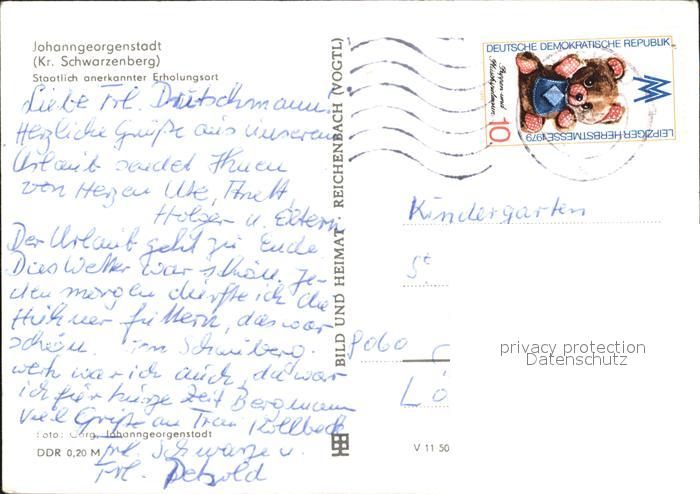 Johanngeorgenstadt
(Kr. Schwarzenberg)
Staatlich anerkannter Erholungsort
Liebe Frl. Deutschmann,
Herzliche Grüße aus unserem
Urlaub sendet Ihnen
von Herzen Ute,
Holger u. Eltern.
Der Urlaub geht zu Ende.
Das Wetter war schön. Je-
den morgen durfte ich die
Hühner füttern, das war
schön. Im Schauberg-
werk war ich auch, da war
ich für kurze Zeit Bergmann
Viel Grüße an Frau
Frl. Schwarze u.
Frl. Petzold
Foto: Georg, Johanngeorgenstadt
DDR 0,20 M
BILD UND HEIMAT REICHENBACH (VOGTL)
V 11 50
DEUTSCHE DEMOKRATISCHE REPUBLIK
Puppen und
Plüschspielwaren
10
LEIPZIGER HERBSTMESSE 1979
MM
Kindergarten
St
9060
Lö
privacy protection
Datenschutz